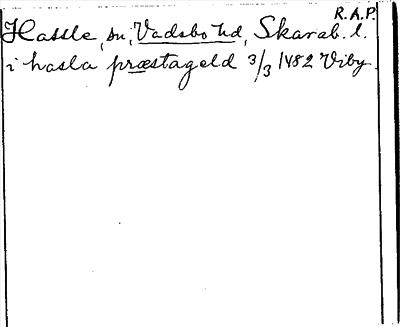 R.A.P.
Hassle, sn, Vadsbo hd, Skarab. l.
i hasla præstageld 3/3 1482 Viby.